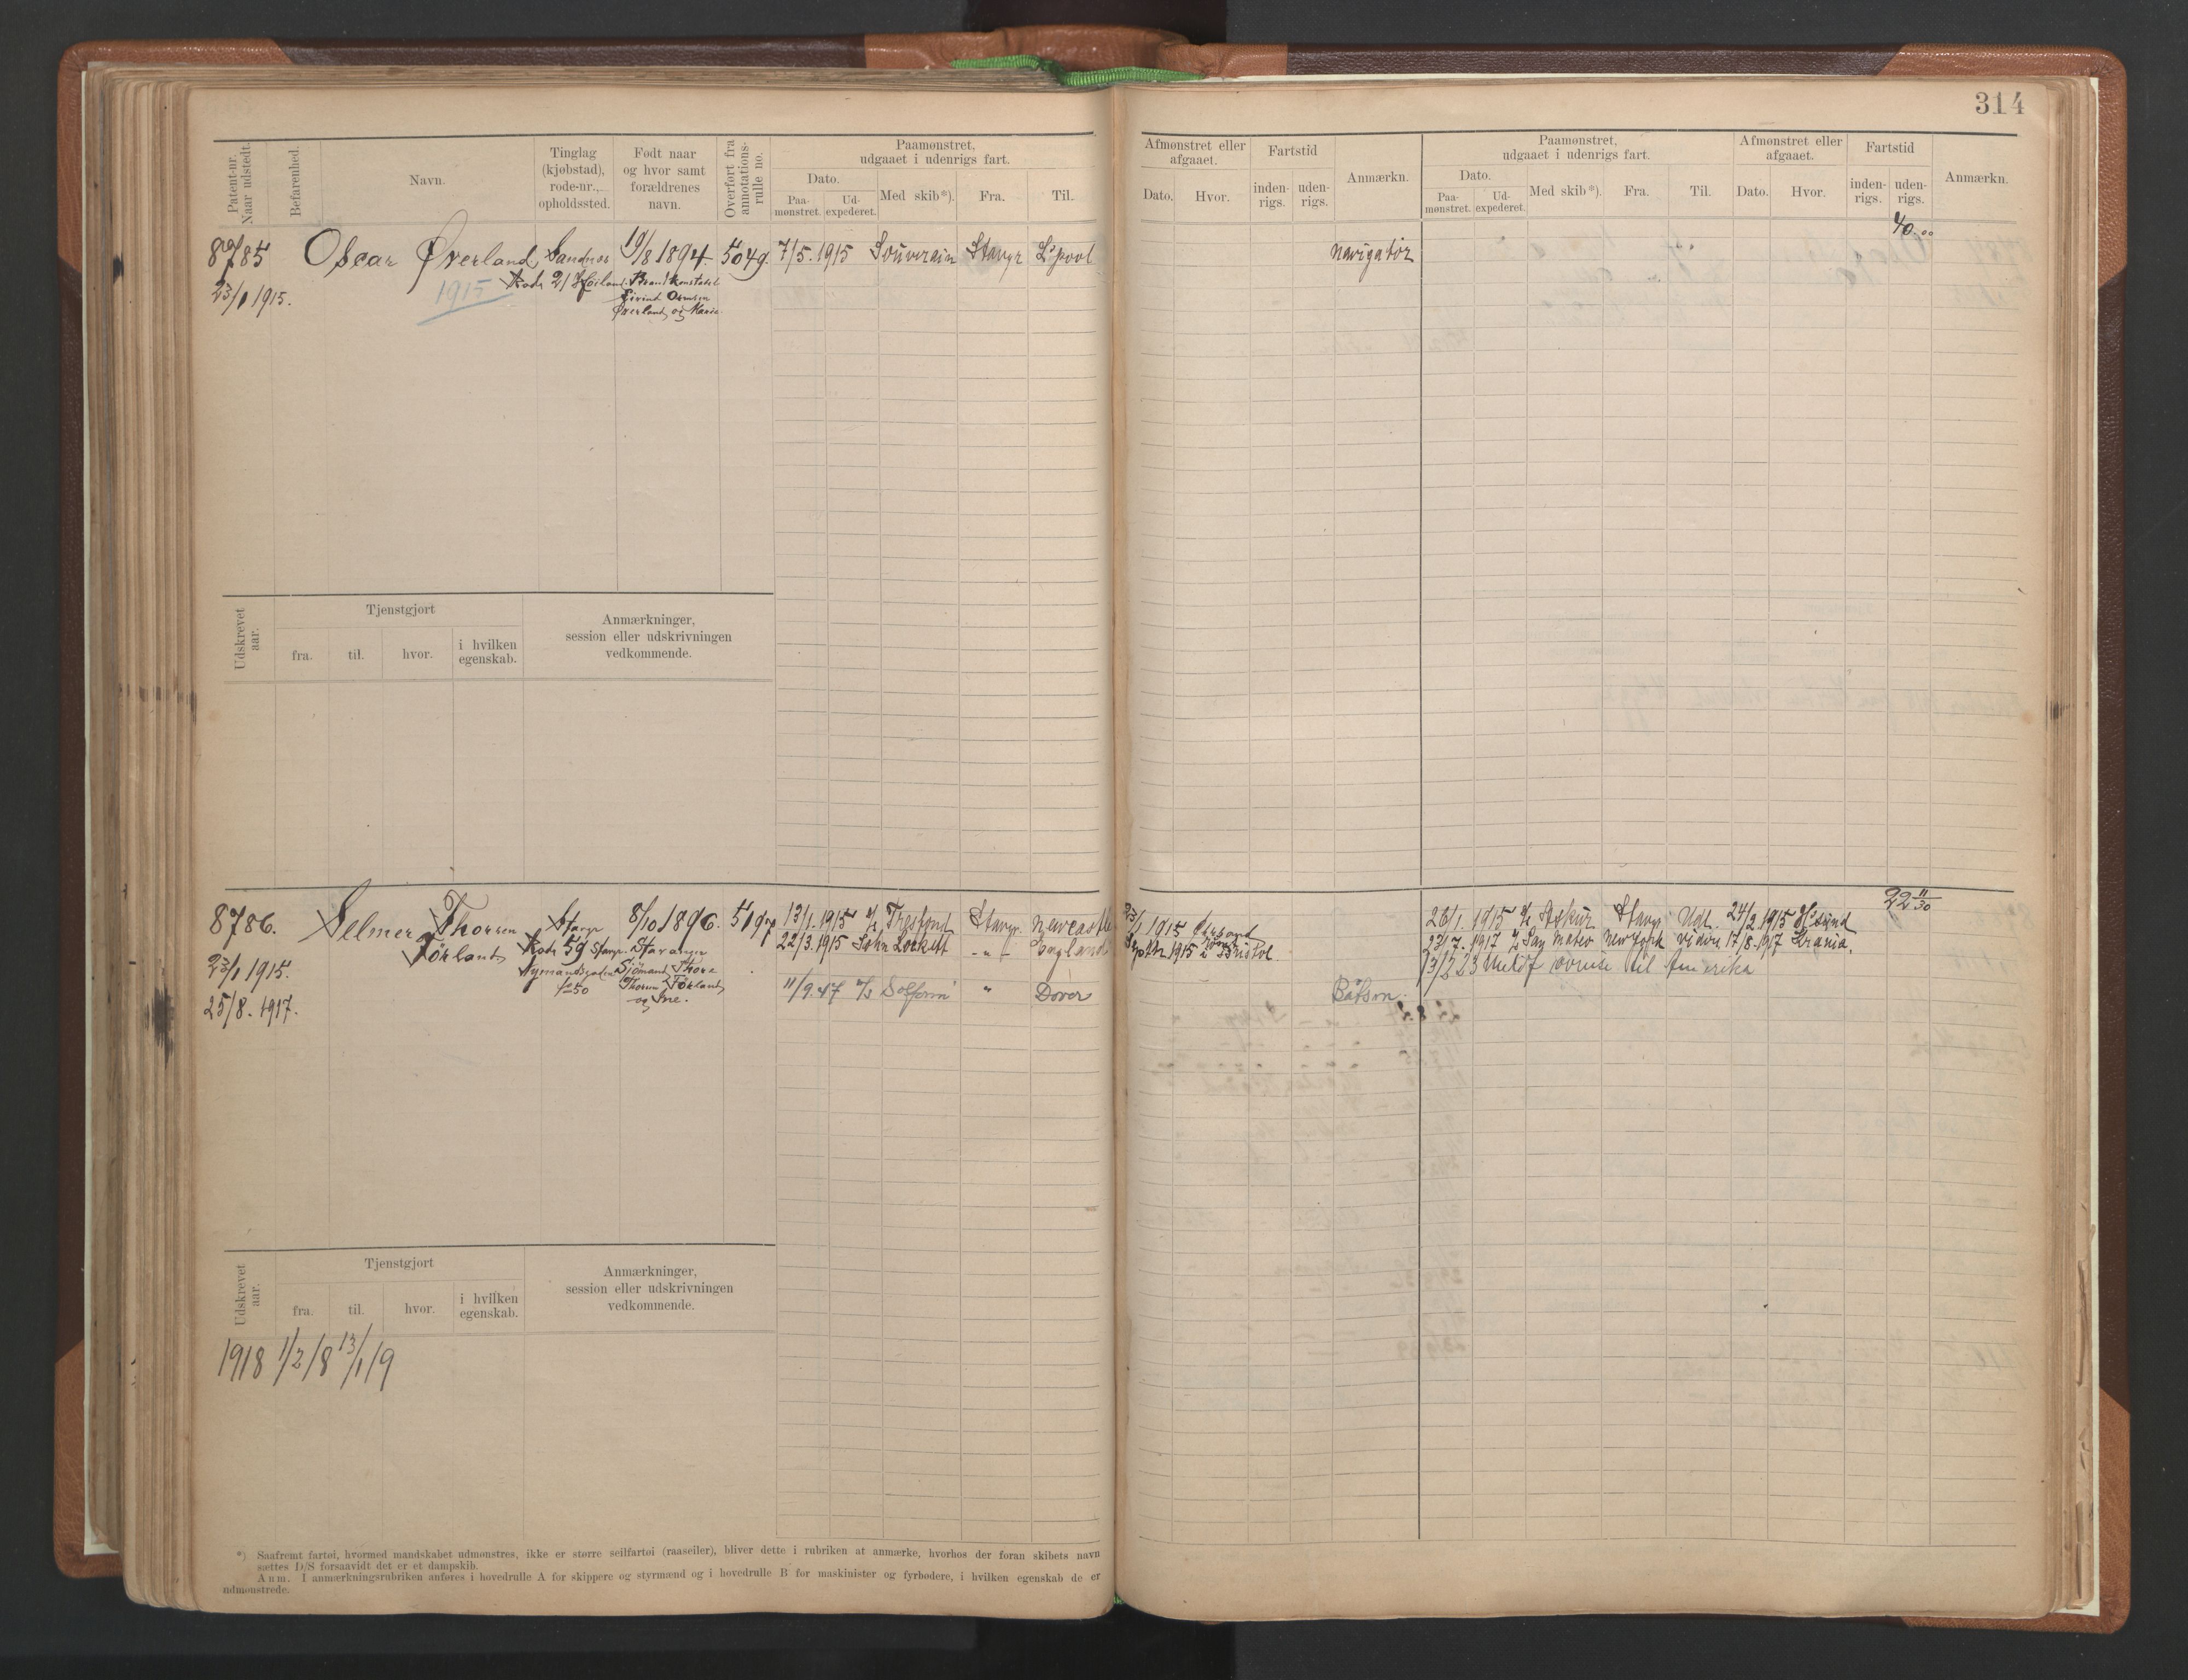 314
Patent-nr. Naar udstedt.
Befarenhed.
Navn.
Tinglag (kjøbstad), rode-nr., opholdssted.
Født naar og hvor samt forældrenes navn.
Overført fra annotations-rulle no.
Paamønstret, udgaaet i udenrigs fart.
Dato.
Paa-mønstret.
Ud-expederet.
Med skib*).
Fra.
Til.
Afmønstret eller afgaaet.
Dato.
Hvor.
Fartstid
inden-rigs.
uden-rigs.
Anmærkn.
Paamønstret, udgaaet i udenrigs fart.
Dato.
Paa-mønstret.
Ud-expederet.
Med skib*).
Fra.
Til.
Afmønstret eller afgaaet.
Dato.
Hvor.
Fartstid
inden-rigs.
uden-rigs.
Anmærkn.
40.00
8785 Oscar Øverland Sandnes 19/8 1894. 5049. 7/5. 1915 Souverain Stavgr L'pool Navigatör
23/1 1915. 1915 Rode 21 Høiland. Brandkonstabel
Eivind Osmsen
Øverland og Maria
Udskrevet aar.
Tjenstgjort
fra.
til.
hvor.
i hvilken egenskab.
Anmærkninger, session eller udskrivningen vedkommende.
8786. Selmer Thorsen Stavgr 8/10 1896. 5197 13/1. 1915 Tresfond Stavgr. Newcastle
Törland Rode 59 Stavgr. Stavanger 22/3. 1915 John Lockett - " - England
23/1 1915. Nymandsgaden Sjömand Thore
50 Thorsen Törland
og Ine.
25/8. 1917.
11/9. 47 Solfonn " Dover Båtsm.
23/1 1915
Septbr 1915 Bristol.
22 11/30
26/1. 1915 Askur Stavgr Udl. 24/2. 1915 H'sund
23/7. 1917 San Mateo New York videre 17/8. 1917 Krania.
13/2 23 Utreise til Amerika
Udskrevet aar.
Tjenstgjort
fra.
til.
hvor.
i hvilken egenskab.
Anmærkninger, session eller udskrivningen vedkommende.
1918 1/2 18 13/1 19
*) Saafremt fartøi, hvormed mandskabet udmønstres, ikke er større seilfartøi (raaseiler), bliver dette i rubriken at anmærke, hvorhos der foran skibets navn
sættes D/S forsaavidt det er et dampskib.
Anm. I anmærkningsrubriken anføres i hovedrulle A for skippere og styrmænd og i hovedrulle B for maskinister og fyrbødere, i hvilken egenskab de er
udmønstrede.